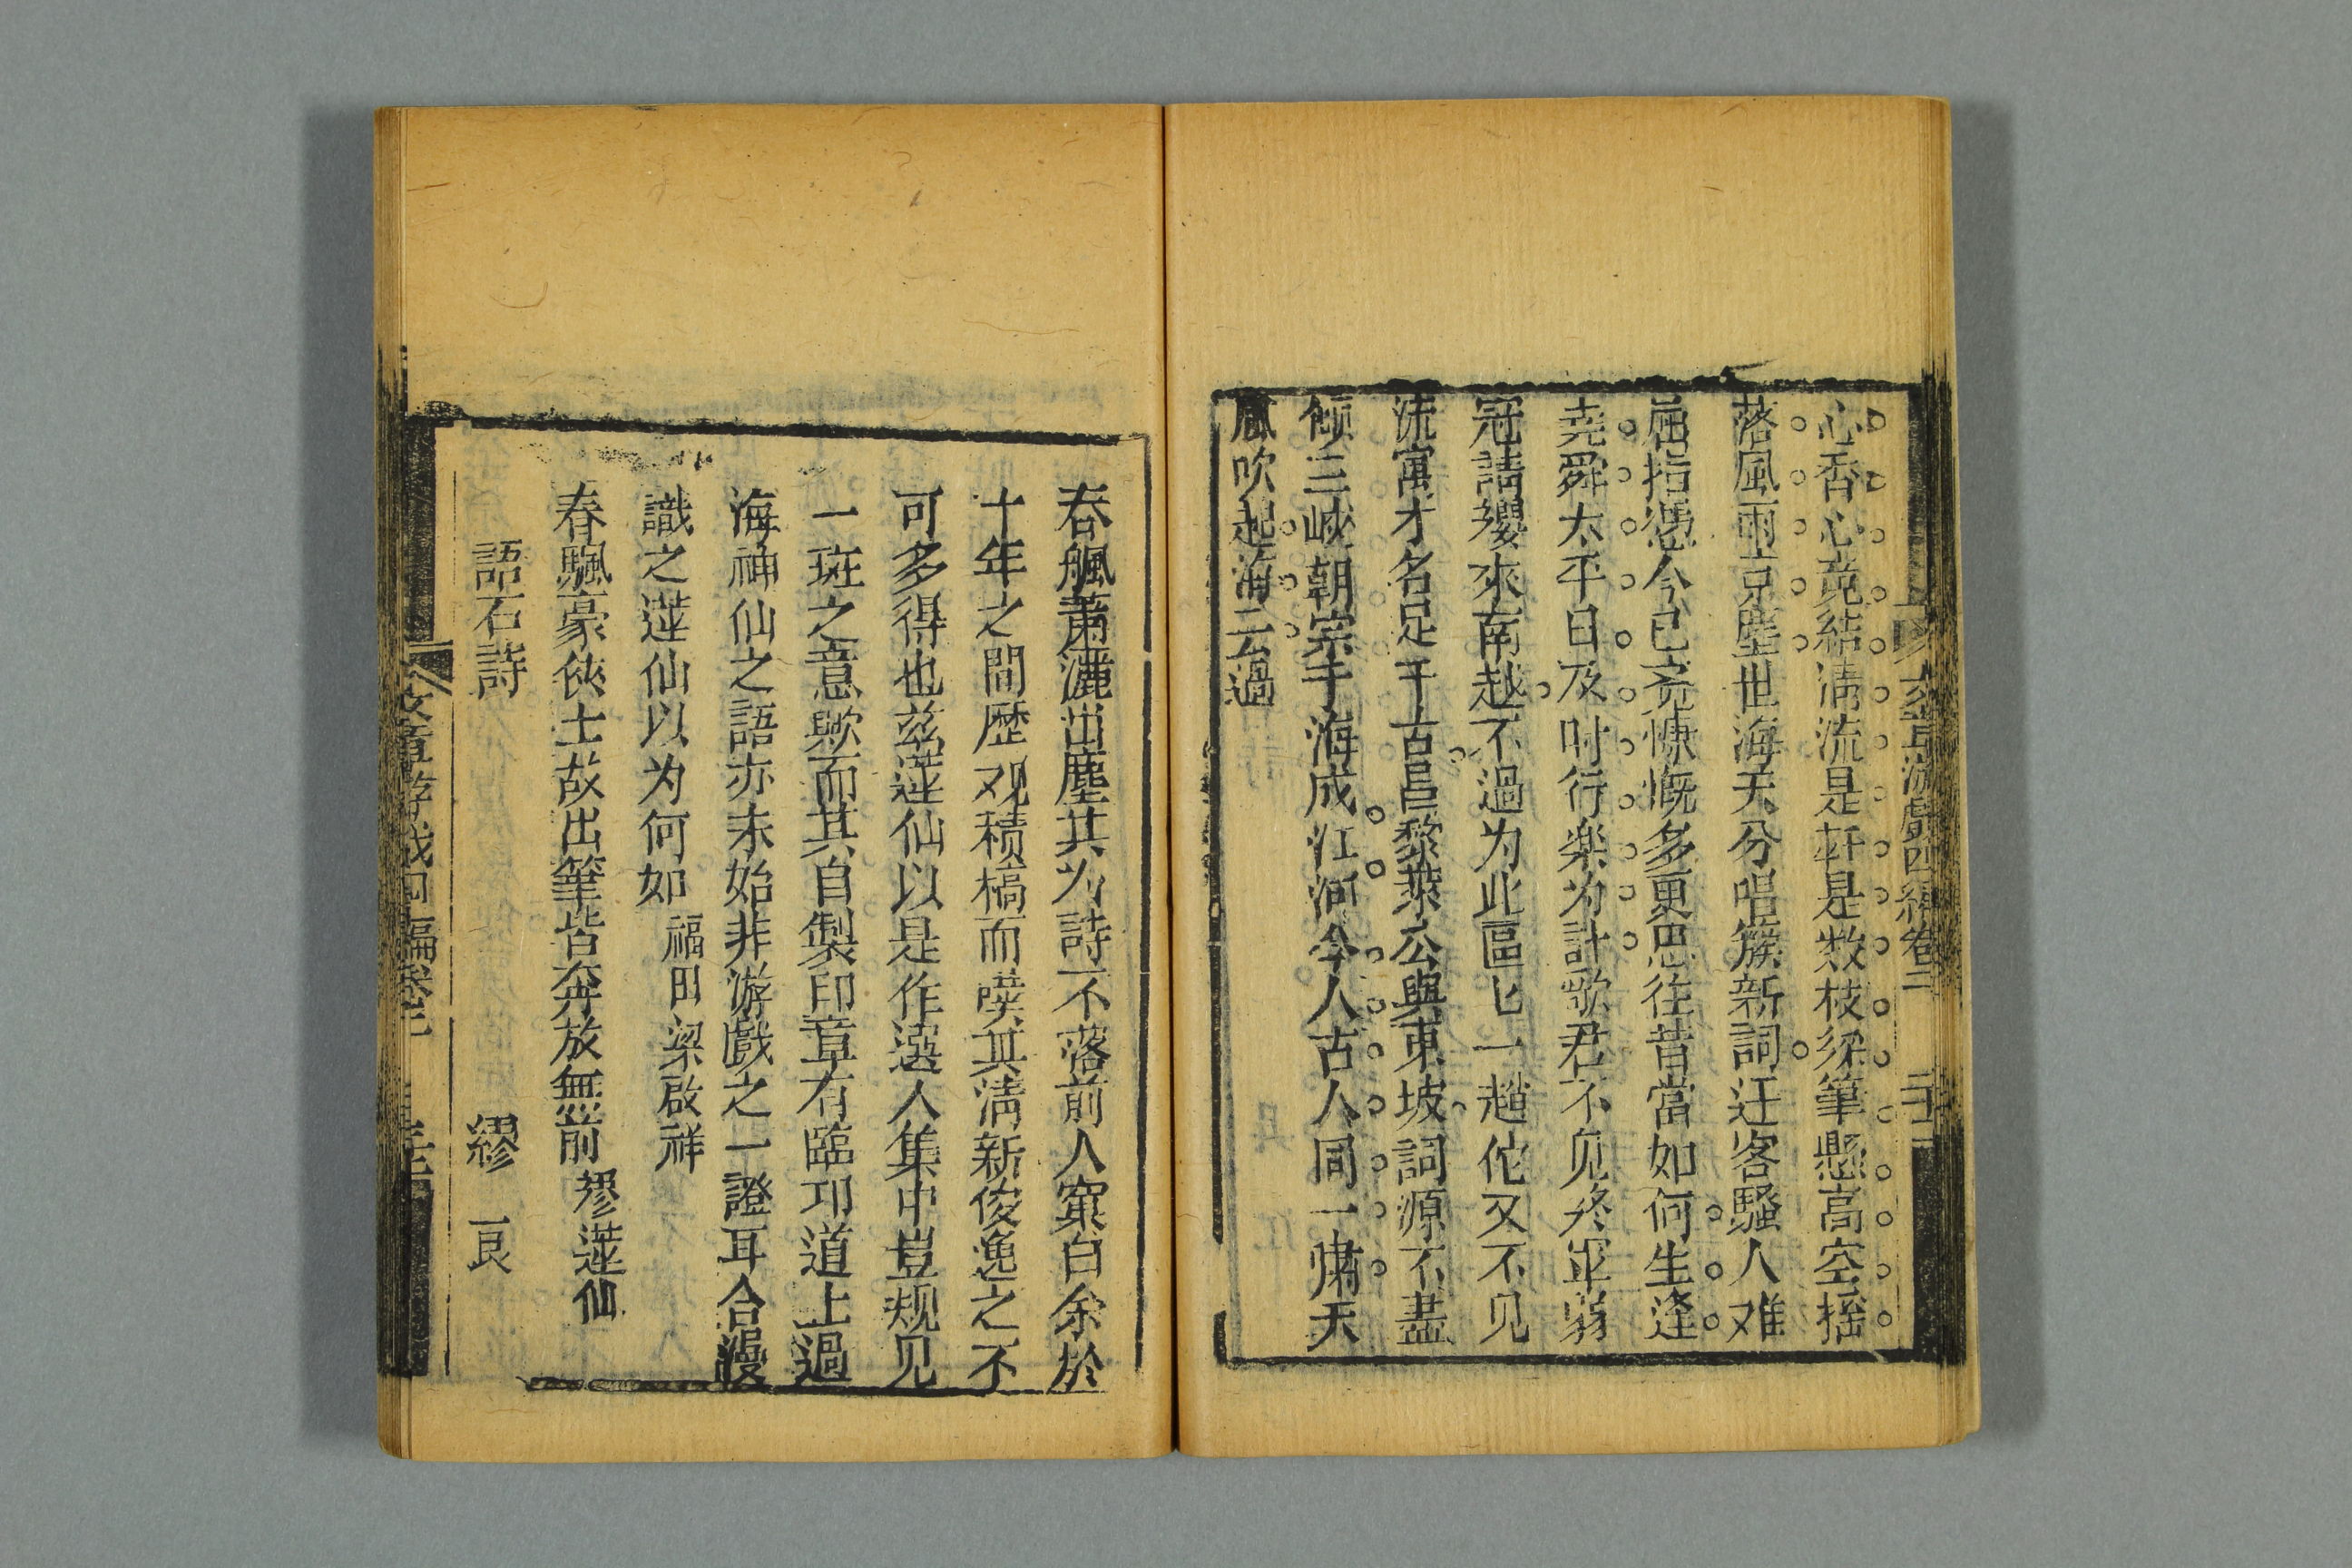 文章游戲四編卷二 二十二
心香心竟結清流是軒是数枝梁筆懸高空揺
落風雨京塵世海天分唱簇新詞迂客騷人难
屈指憑今已亮慷慨多更思往昔當如何生逢
尭舜太平日及时行樂为計歌君不见终軍弱
冠請纓來南越不過为此區匕一趙佗又不见
流寓才名足千古邑黎葉公與東坡詞源不盡
傾三峽朝宗手海成江河今人古人同一嘯天
風吹起海云過
春颿萧灑出塵其为詩不落前人窠臼余於
十年之間歴观積槁而嘆其淸新俊逸之不
可多得也兹蓮仙以是作選人集中豈规见
一斑之意歟而其自製印章有臨邛道上過
海神仙之語亦未始非游戲之一證耳合漫
識之蓮仙以为何如 福田梁啟祥
春颿豪俠士故出筆皆奔放無前 繆蓮仙
語石詩 繆艮
文章游戏四編卷二